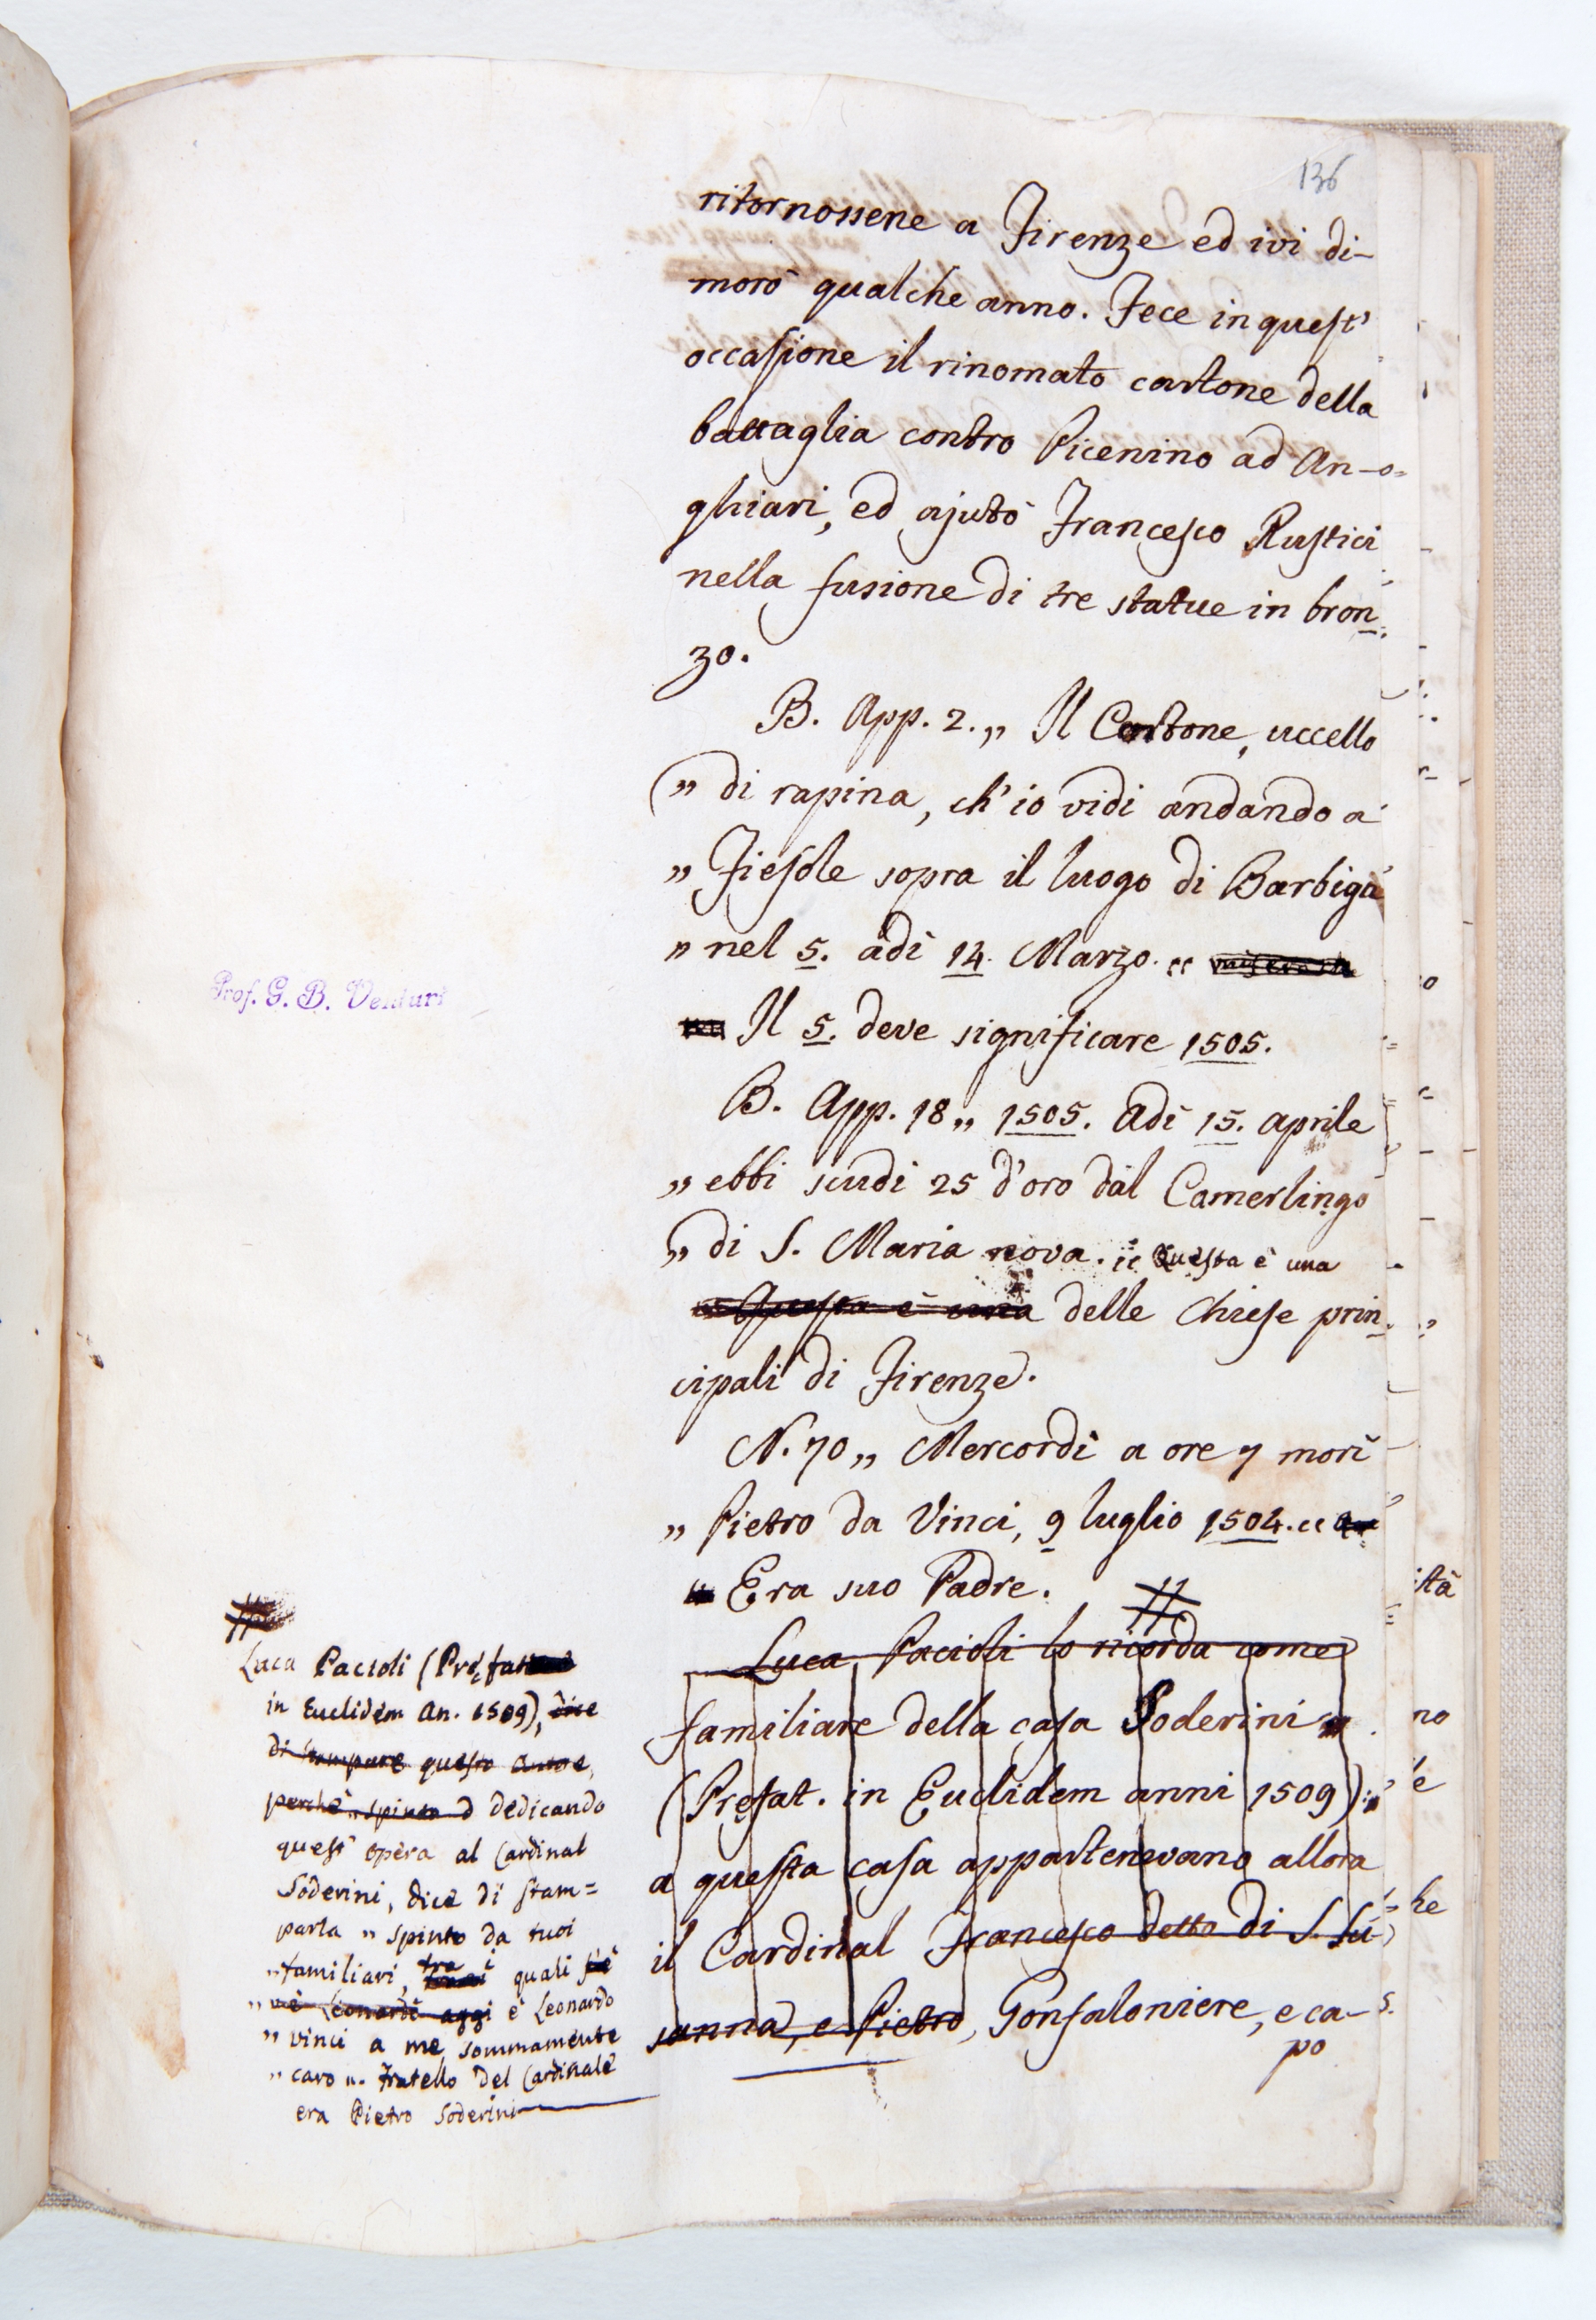 136
ritornossene a Firenze ed ivi di-
morò qualche anno. Fece in quest'
occasione il rinomato cartone della
battaglia contro Picenino ad An-
ghiari, ed ajutò Francesco Rustici
nella fusione di tre statue in bron=
zo.
B. App. 2. „ Il Cortone, uccello
(„ di rapina, ch'io vidi andando a
„ Fiesole sopra il luogo di Barbiga
„ nel 5. adì 14. Marzo. “
Il 5. deve significare 1505.
B. App. 18 „ 1505. Adì 15. aprile
„ ebbi scudi 25 d'oro dal Camerlingo
„ di S. Maria nova. “ Questa è una
Questa è una delle Chiese prin=
cipali di Firenze.
N. 70 „ Mercordì a ore 7 morì
„ Pietro da Vinci, 9 luglio 1504. “
Era suo Padre. #
Luca Pacioli lo ricorda come
familiare della casa Soderini
(Prefat. in Euclidem anni 1509):
a questa casa appartenevano allora
il Cardinal Francesco detto di S. Su-
sanna, e Pietro, Gonfaloniere, e ca-
po
Prof. G. B. Venturi
#
Luca Pacioli (Prefat
in Euclidem An. 1509), dice
di stampare questo autore,
perchè „ spinto d dedicando
quest' opera al Cardinal
Soderini, dice di stam=
parla „ spinto da tuoi
„ familiari, tra i quali
„ Leonardi è Leonardo
„ vinci a me sommamente
„ caro “. Fratello del Cardinale
era Pietro Soderini